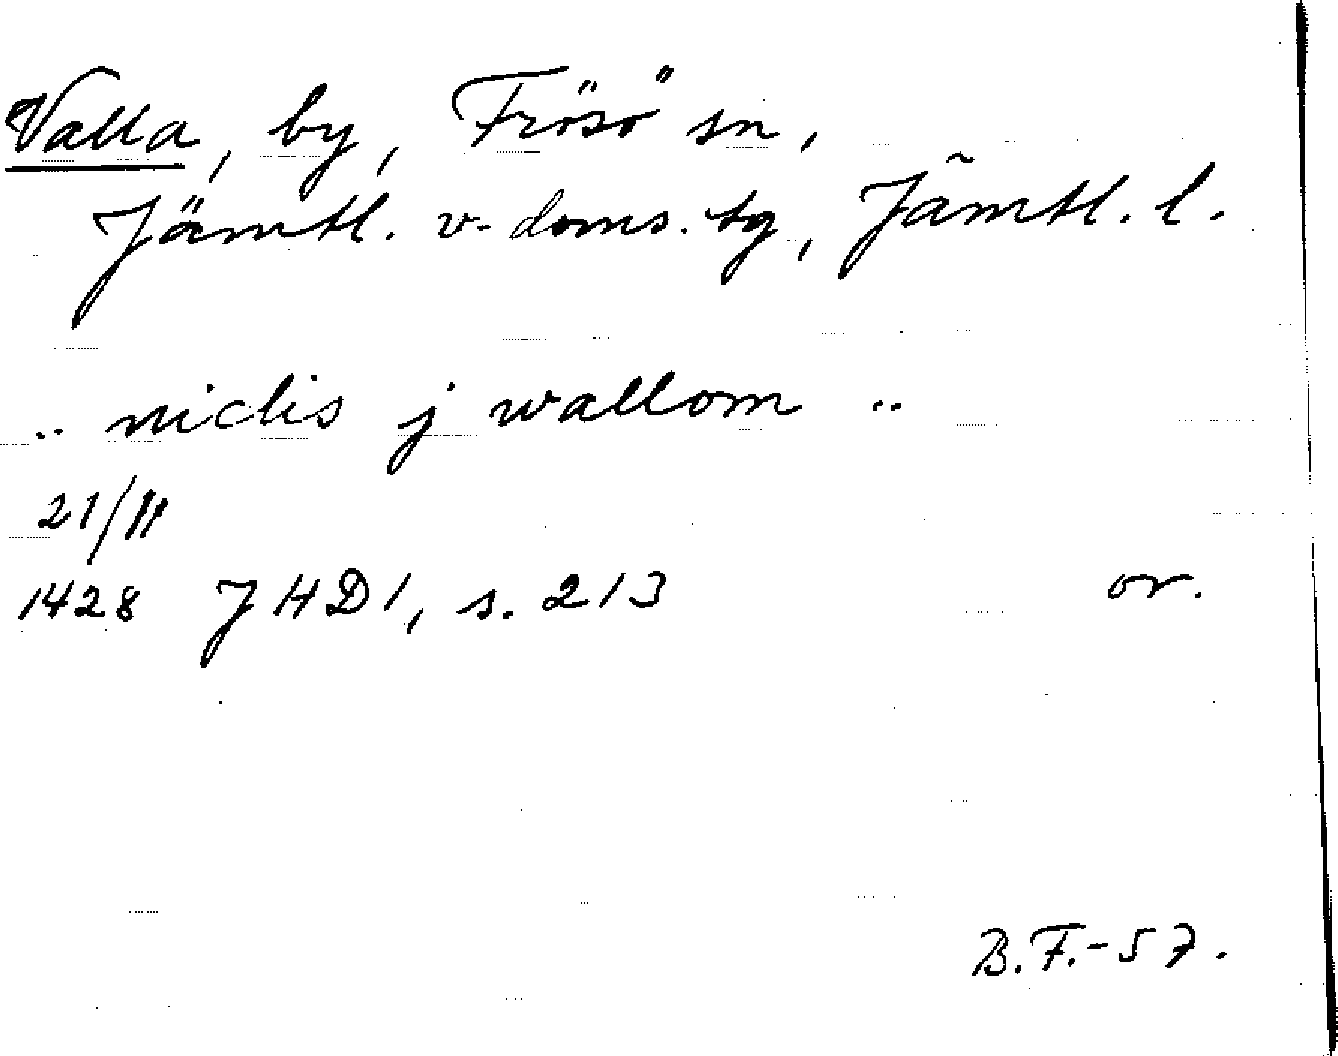 Valla, by, Frösö sn,
Jämtl. v. doms. tg, Jämtl. l.
.. niclis j wallom ..
21/11
1428 JHD1, s. 213 or.
B.F.-57.